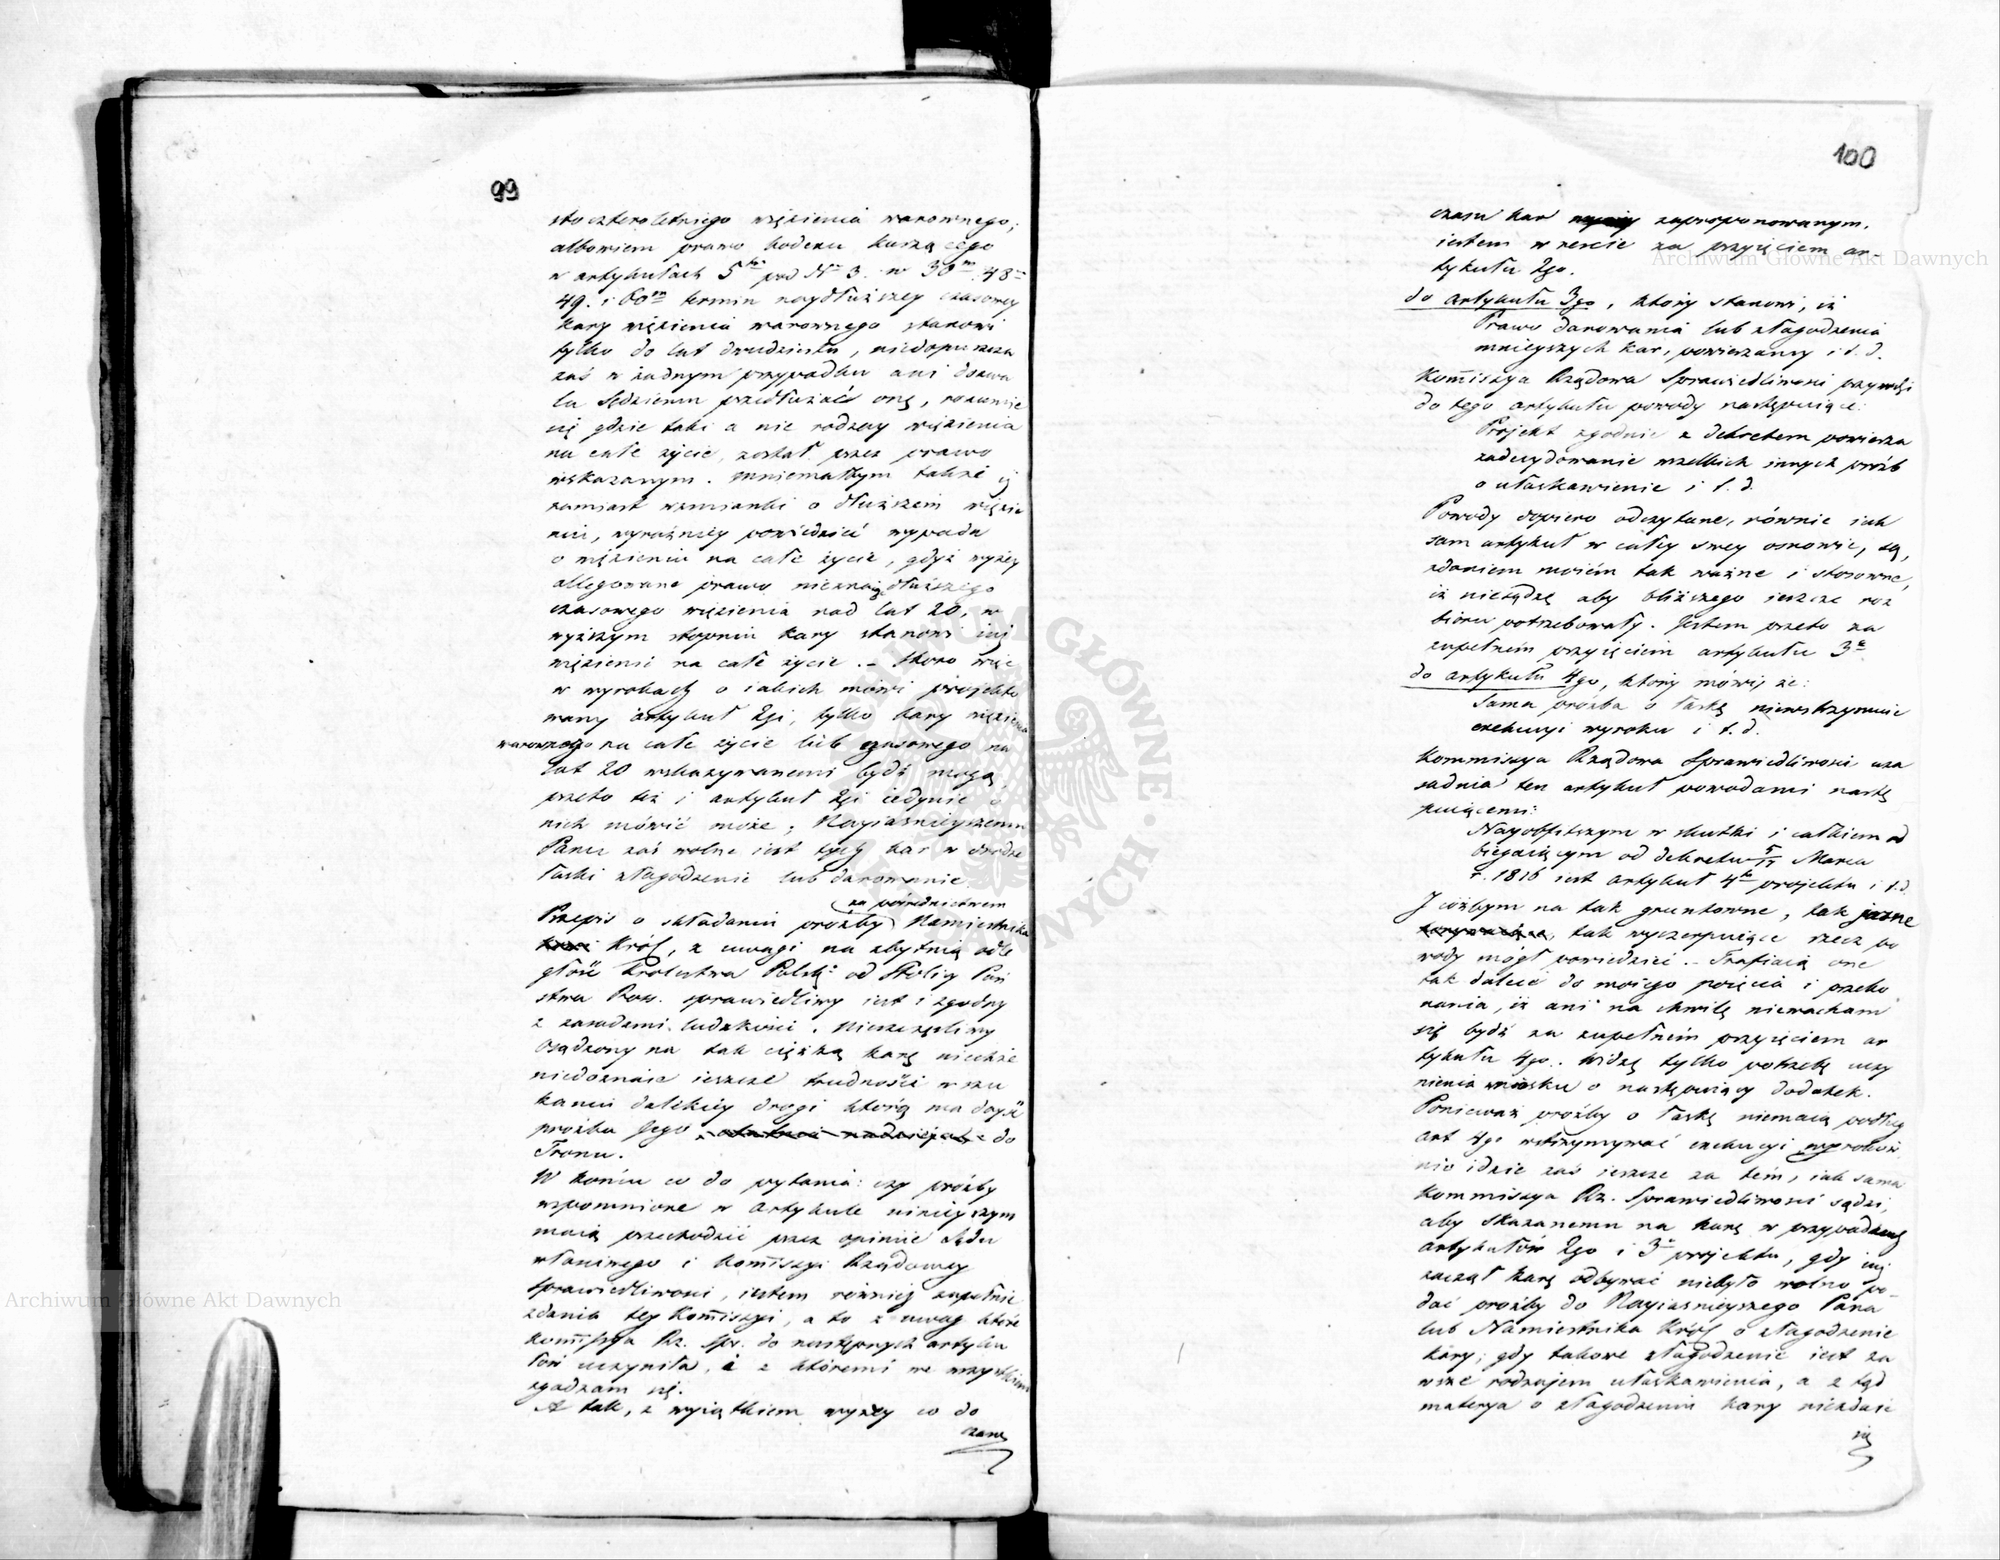 99
sto czteroletniego więzienia warownego;
albowiem prawo kodexu karzącego
w artykułach 5tm pod No 3. w 30m 48m
49. i 60m termin naydłuższey czasowey
kary więzienia warownego stanowi
tylko do lat dwudziestu, niedopuszcza
zaś w żadnym przypadku ani dozwa
la Sędziemu przedłużać onę, rozumie
się gdzie taki a nie rodzay więzienia
na całe życie, został przez prawo
wskazanym. Mniemałbym także iż
zamiast wzmianki o dłuższem więzie
niu, wyraźniey powiedzieć wypada
o więzieniu na całe życie, gdyż wyżey
allegowane prawo nieznając dłuższego
czasowego więzienia nad lat 20, w
wyższym stopniu kary stanowi iuż
więzienie na całe życie. – Skoro więc
w wyrokach o iakich mówi proiekto
wany artykuł 2gi, tylko kary więzienia
warownego na całe życie lub czasowego na
lat 20 wskazywanemi bydź mogą,
przeto też i artykuł 2gi iedynie o
nich mówić może; Nayiaśnieyszemu
Panu zaś wolne iest tych kar w drodze
łaski złagodzenie lub darowanie.
za pośrednictwem
Przepis o składaniu prożby Namiestnika
Król, z uwagi na zbytnią odle
głość Królestwa Polskĭ od Stolicy Pań
stwa Ross. sprawiedliwy iest i zgodny
z zasadami ludzkości. Nieszczęśliwy
Osądzony na tak ciężką karę niechże
niedoznaie ieszcze trudności w szu
kaniu dalekiey drogi którą ma doyść
prożba Jego do
Tronu.
W końcu co do pytania: czy prośby
wspomnione w Artykule ninieyszym
maią przechodzić przez opinie Sądu
właściwego i Kommissyi Rządowey
Sprawiedliwości, iestem również zupełnie
zdania tey Kommissyi, a to z uwag które
Kommissya Rz. Spr. do następnych artyku
łów uczyniła, i z któremi we wszystkiem
zgadzam się.
A tak, z wyiątkiem wyżey co do
czasu
100
czasu kar zaproponowanym,
iestem w reszcie za przyięciem ar-
tykułu 2go.
do artykułu 3go, który stanowi, iż
Prawo darowania lub złagodzenia
mnieyszych kar, powierzamy i t. d.
Kommissya Rządowa Sprawiedliwości przywodzi
do tego artykułu powody następuiące:
Projekt zgodnie z dekretem powierza
zadecydowanie wszelkich innych próśb
o ułaskawienie i t. d.
Powody dopiero odczytane, równie iak
sam artykuł w całey swey osnowie, są,
zdaniem moiém tak ważne i stosowne,
iż niesądzę aby bliższego ieszcze roz
bioru potrzebowały. Jestem przeto za
zupełnem przyięciem artykułu 3o
do artykułu 4go, który mówi, że:
Sama prożba o łaskę niewstrzymuie
exekucyi wyroku i t. d.
Kommissya Rządowa Sprawiedliwości uza
sadnia ten artykuł powodami nastę
puiącemi:
Nayobfitszym w skutki i całkiem od
biegaiącym od dekretu 5/17 Marca
r. 1816 iest artykuł 4ty projektu i t. d.
I cóżbym na tak gruntowne, tak jasne
tak wyczerpuiące rzecz po
wody mógł powiedzieć. – Trafiaią one
tak dalece do moiego poięcia i przeko
nania, iż ani na chwilę niewacham
się bydź za zupełném przyięciem ar
tykułu 4go. Widzę tylko potrzebę uczy
nienia wniosku o następuiący dodatek.
Ponieważ prośby o łaskę niemaią podług
art 4go wstrzymywać exekucyi wyroków
nie idzie zaś ieszcze za tém, iak sama
Kommissya Rz. Sprawiedliwości sądzi,
aby skazanemu na karę w przypadkach
artykułów 2go i 3o projektu, gdy iuż
zaczął karę odbywać niebyło wolno po-
dać prośby do Nayiaśnieyszego Pana
lub Namiestnika Król o złagodzenie
kary; gdy takowe złagodzenie iest za
wsze rodzajem ułaskawienia, a z tąd
materya o złagodzeniu kary niezdaie
się
Archiwum Główne Akt Dawnych
Archiwum Główne Akt Dawnych
ARCHIWUM GŁÓWNE AKT DAWNYCH